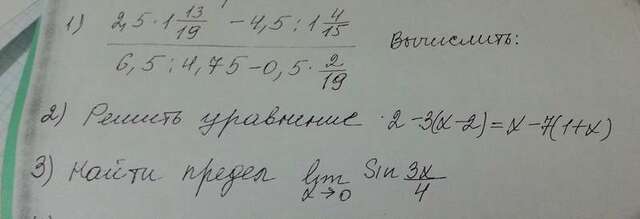 1) 2,5 · 1 13/19 − 4,5 : 1 4/15
6,5 : 4,75 − 0,5 · 2/19
Вычислить:
2) Решить уравнение 2 − 3(x − 2) = x − 7(1 + x)
3) Найти предел lim x→0 Sin 3x/4